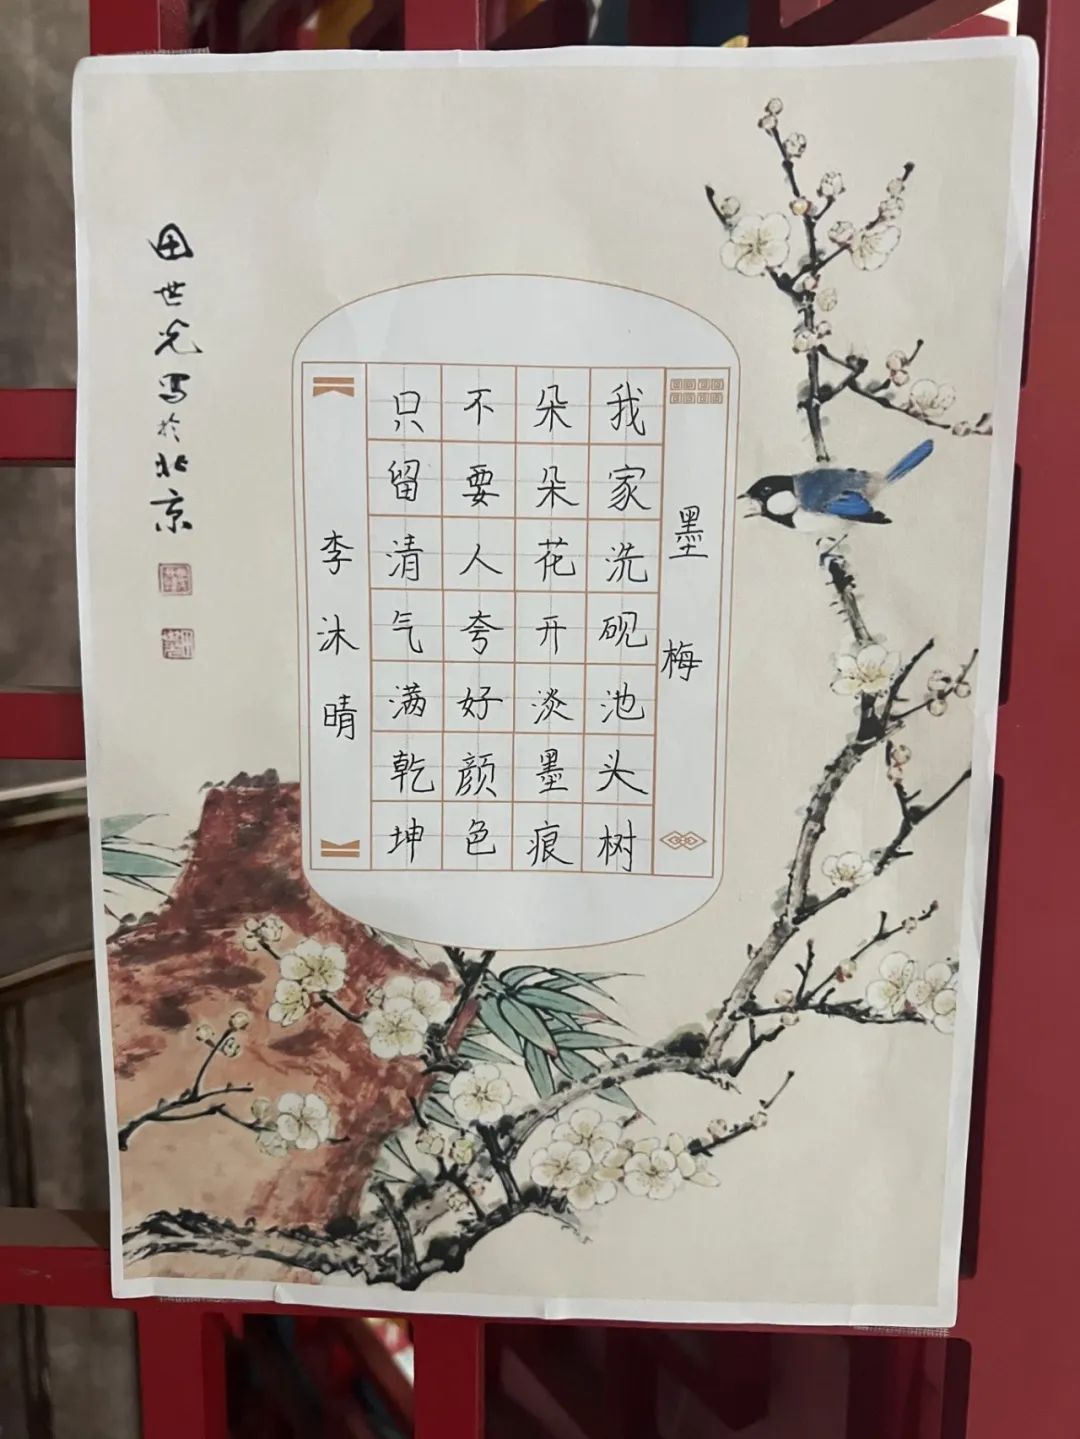 墨梅
我家洗砚池头树
朵朵花开淡墨痕
不要人夸好颜色
只留清气满乾坤
李沐晴
田世光写于北京